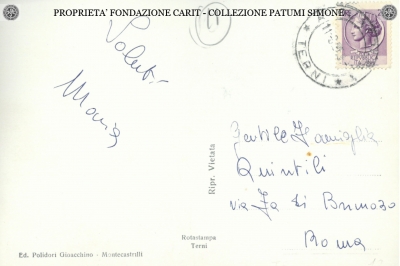 PROPRIETA' FONDAZIONE CARIT - COLLEZIONE PATUMI SIMONE
TERNI
Saluti
Maria
Gentile Famiglia
Quintili
via Fa di Bruno
Roma
Ripr. Vietata
Rotostampa
Terni
Ed. Polidori Gioacchino - Montecastrilli